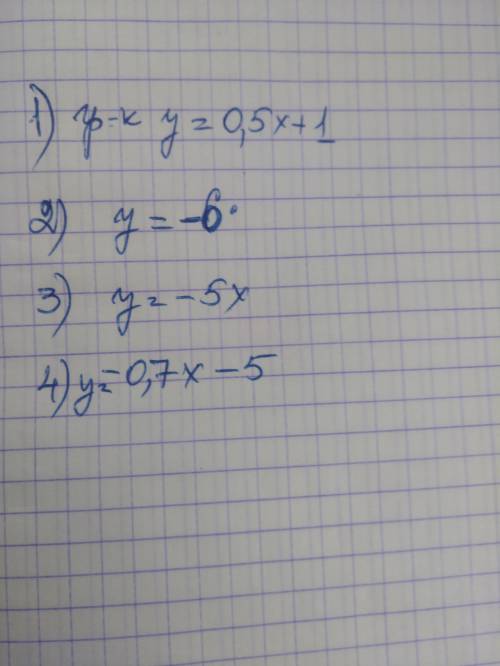 1) гр-к y = 0,5x + 1
2) y = -6.
3) y = - 5x
4) y = -0,7x - 5